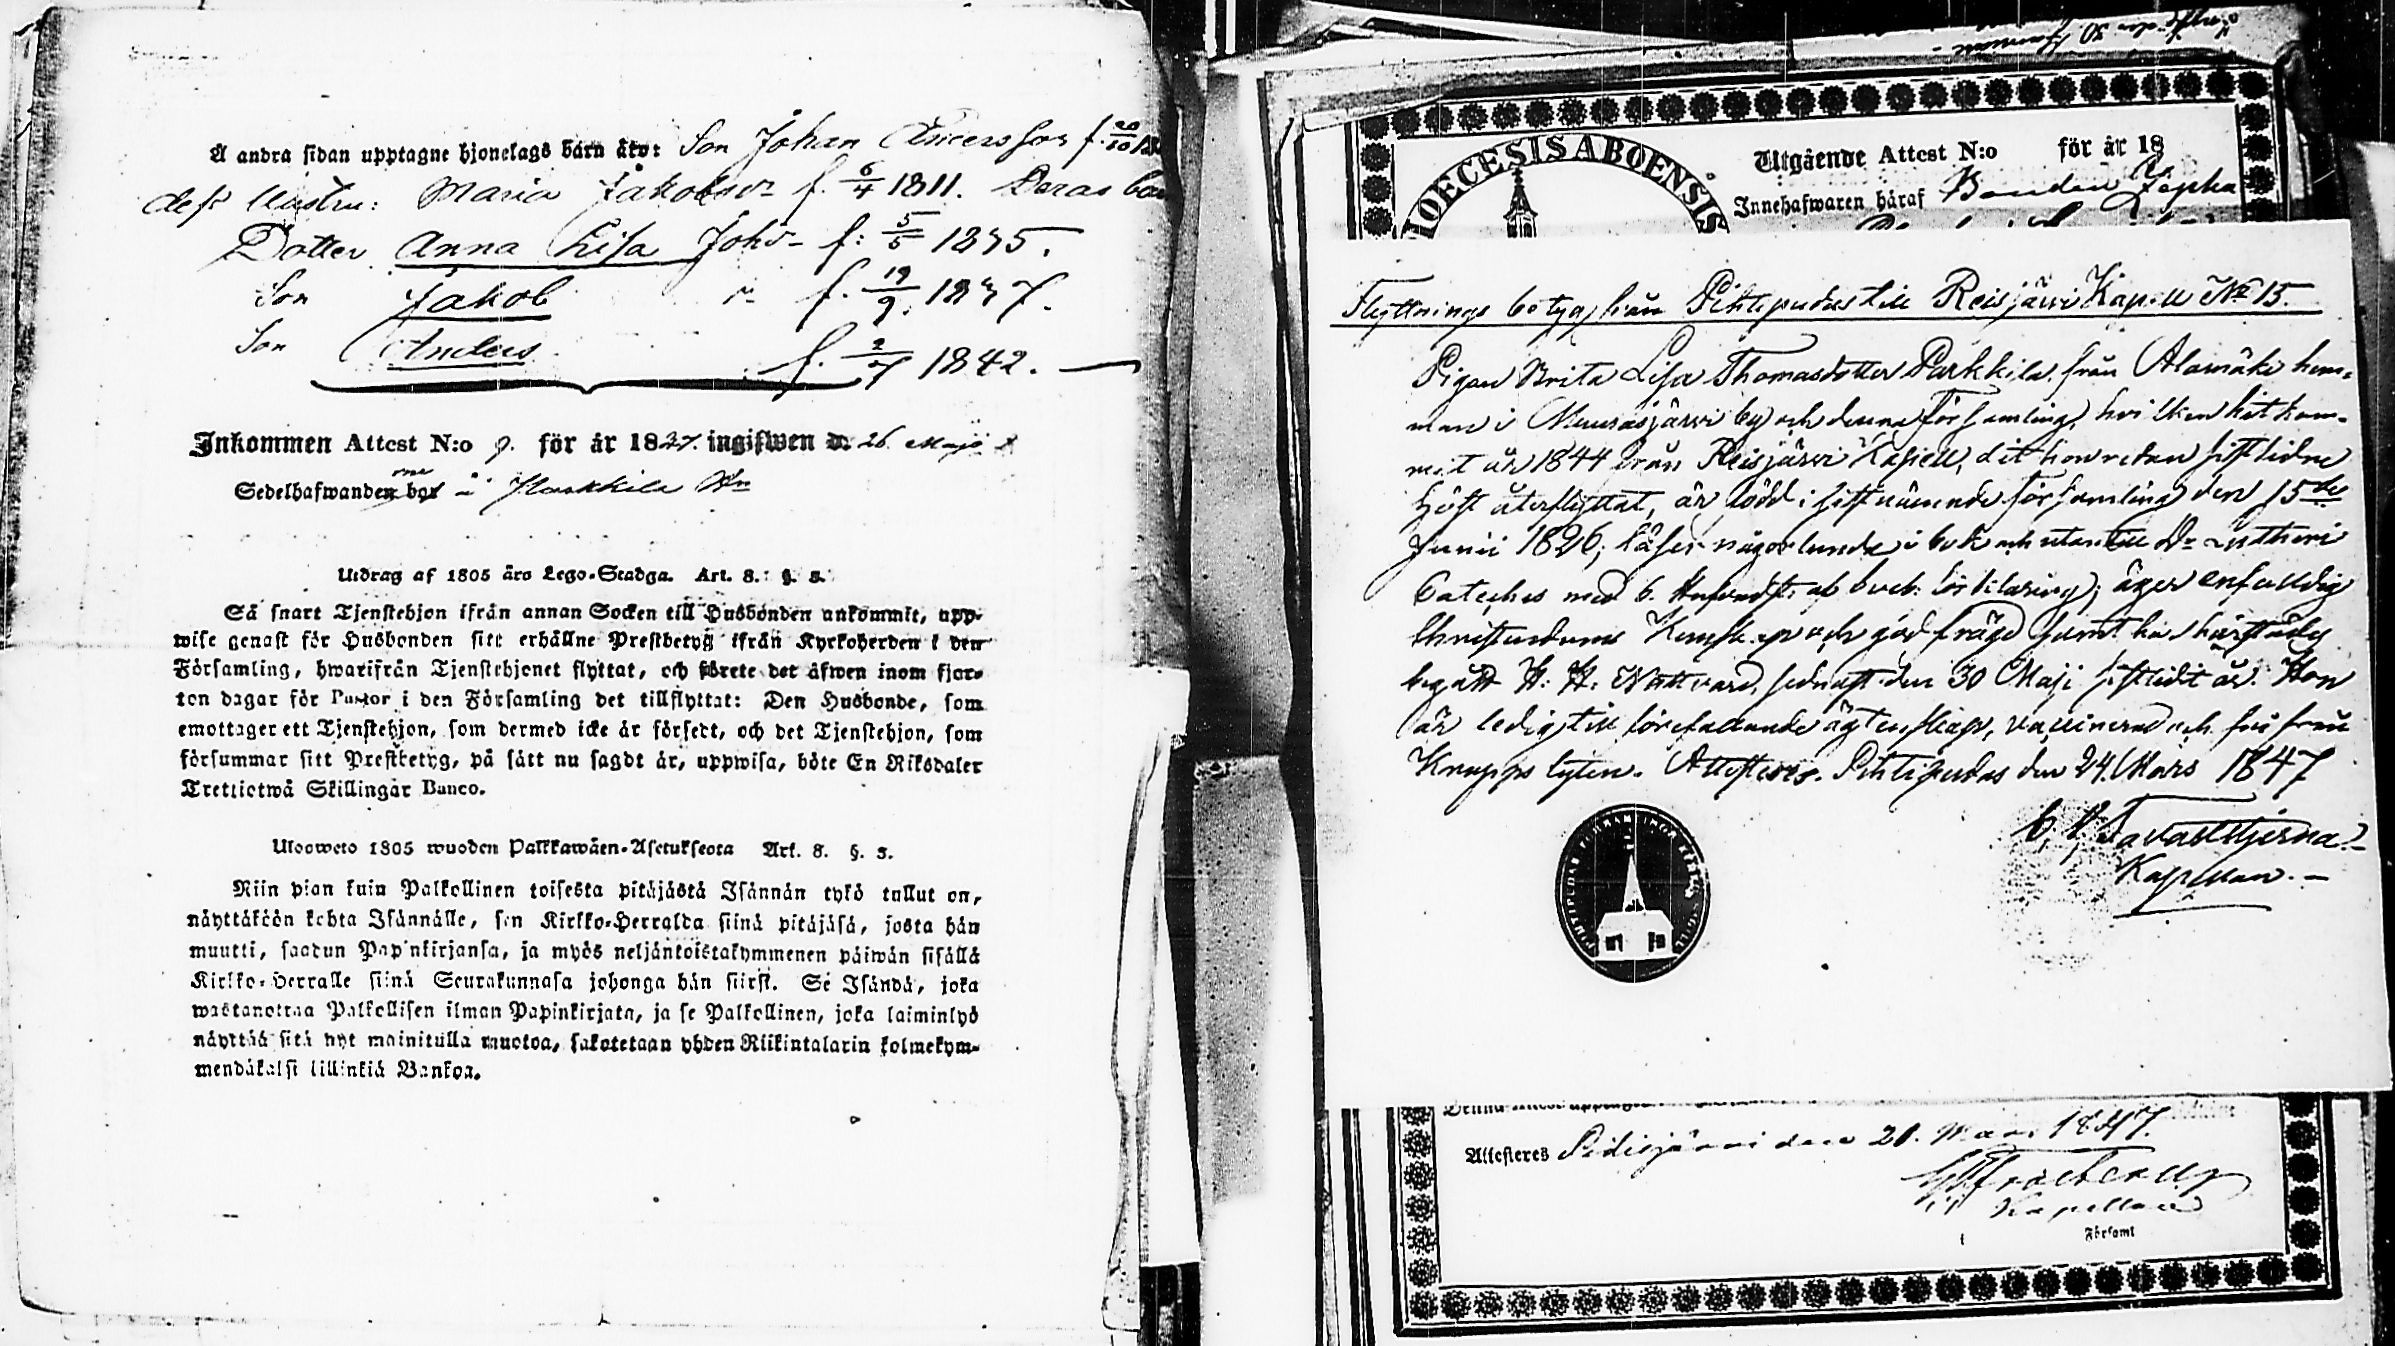 Å andra sidan upptagne hjonelags barn äro: Son Johan Andersson f. 
dess Hustru: Maria Jakobsdr f. 6/4 1811. Deras
Dotter Anna Lisa Johs- f: 5/5 1835.
Son Jakob f. 19/9 1837.
Son Anders f. 1842.
Inkommen Attest N:o 9. för år 18 ingifwen d. 26 Maji
Sedelhafwanden bor i
Utdrag af 1805 års Lego-Stadga. Art. 8. §. 3.
Så snart Tjenstehjon ifrån annan Socken till Husbonden ankommit, upp-
wise genast för Husbonden sitt erhållne Prestbetyg ifrån Kyrkoherden i den
Församling, hwarifrån Tjenstehjonet flyttat, och förete det äfwen inom fjor-
ton dagar för Pastor i den Församling det tillflyttat: Den Husbonde, som
emottager ett Tjenstehjon, som dermed icke är försedt, och det Tjenstehjon, som
försummar sitt Prestbetyg, på sätt nu sagdt är, uppwisa, böte En Riksdaler
Trettiotwå Skillingar Banco.
Ulosweto 1805 wuoden Palkkawäen-Asetuksesta Art. 8. §. 3.
Niin pian kuin Palkollinen toisesta pitäjästä Isännän tykö tullut on,
näyttäköön kohta Isännälle, sen Kirkko-Herralda siinä pitäjäsä, josta hän
muutti, saadun Papinkirjansa, ja myös neljäntoistakymmenen päiwän sisällä
Kirkko-Herralle siinä Seurakunnasa johonga hän siirsi. Se Isändä, joka
wastanottaa Palkollisen ilman Papinkirjata, ja se Palkollinen, joka laiminlyö
näyttää sitä nyt mainitulla muotoa, sakotetaan yhden Riikintalarin kolmekym-
mendäkaksi killinkiä Bankoa.
DIOECESIS ABOENSIS
Utgående Attest N:o för år 18
Innehafwaren häraf Bonden
Flyttnings betyg från Pihtipudas till Reisjärvi Kapell No 15.
Pigan Brita Lisa Thomasdotter Parkkila från Alamäki hem-
man i Muurasjärvi by och denna Församling, hvilken hit kom-
mit år 1844 från Reisjärvi Kapell, dit hon redan sistlidne
höst återflyttat, är född i sistnämnde Församling den 15de
Junii 1826; läser någorlunda i bok och utantill Dr Lutheri
Cateches med förklaring; äger enfaldig
Christendoms Kunskap och god frägd samt har härstädes
begått H. H. Nattvard, sednast den 30 Maji sistlidit år. Hon
är ledig till förefallande ägtenskap, vaccinerad och fri från
Kropps lyten. Attesteres. Pihtipudas den 24 Mars 1847
Tavaststjerna
Kapellan.
Attesteres Pidisjärvi den 21. Mars 1847.
Kapellan
Förſamt